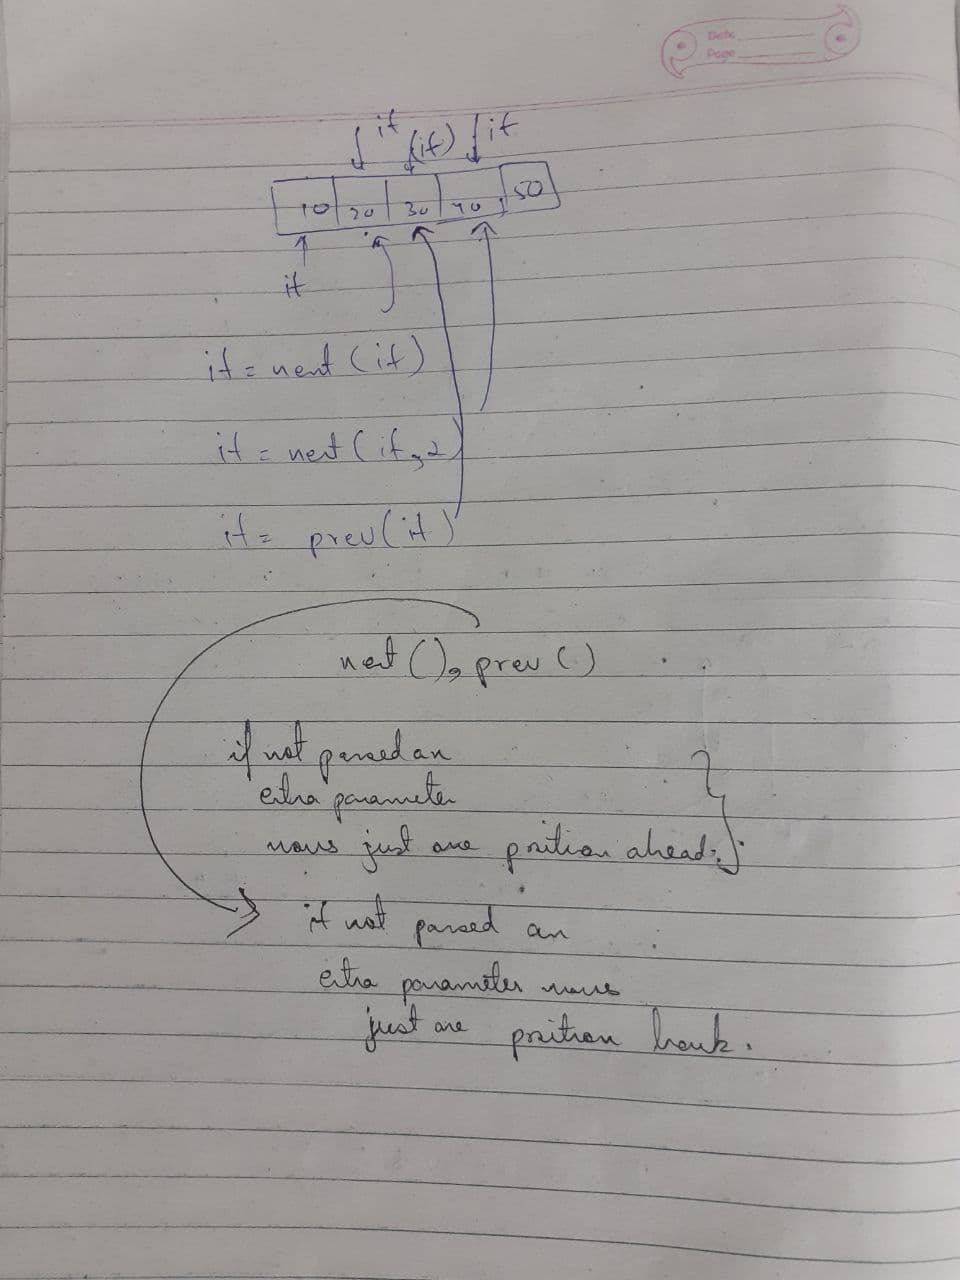 Date
Page
it (it) it
10 20 30 40 50
it
it = next (it)
it = next (it, 2)
it = prev (it)
next (), prev ()
if not passed an
extra parameter
moves just one position ahead;
if not passed an
extra parameter moves
just one position back.